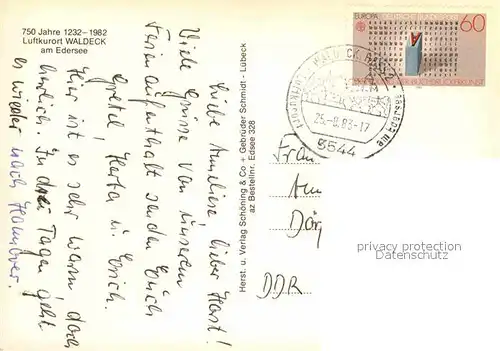 750 Jahre 1232-1982
Luftkurort WALDECK
am Edersee
Liebe Anneliese, lieber Horst!
Viele Grüsse von unserem
Ferienaufenthalt senden Euch
Gretel, Herta u. Erich.
Hier ist es sehr warm doch
herrlich. In drei Tagen geht
es wieder nach Hannover.
Herst. u. Verlag Schöning & Co + Gebrüder Schmidt - Lübeck
az Bestellnr. Edsee 328
EUROPA
60
25.-8.83-17
3544
am Edersee
Frau
Am
DDR
privacy protection
Datenschutz